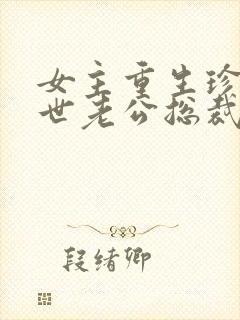 女主重生珍
世老公总裁
段绪卿